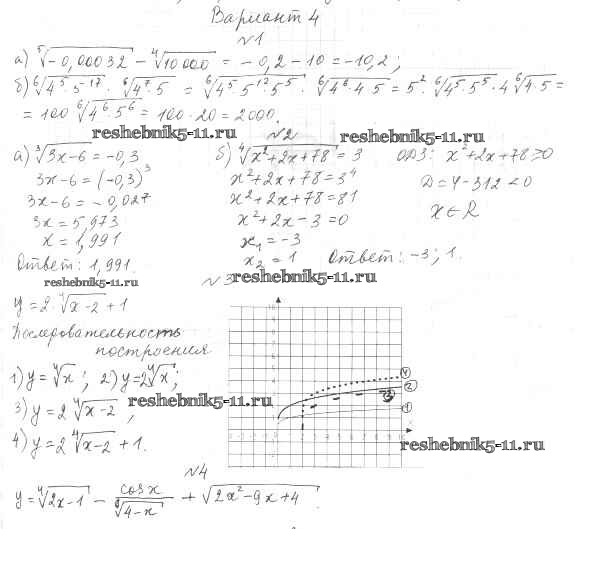 Вариант 4
№1
а) ⁵√-0,00032 - ⁴√10000 = -0,2-10 = -10,2;
б) ⁶√4⁵·5⁻¹⁷ · ⁶√4⁷·5 = ⁶√4⁵·5¹²·5⁵ · ⁶√4⁶·4·5 = 5²·⁶√4⁵·5⁵·4 ⁶√4·5 =
= 100 ⁶√4⁶·5⁶ = 100·20 = 2000.
reshebnik5-11.ru
reshebnik5-11.ru
№2
а) ³√3x-6 = -0,3
3x-6 = (-0,3)³
3x-6 = -0,027
3x = 5,973
x = 1,991
Ответ: 1,991.
б) ⁴√x²+2x+78 = 3
x²+2x+78 = 3⁴
x²+2x+78 = 81
x²+2x-3 = 0
x₁ = -3
x₂ = 1
ОДЗ: x²+2x+78 ≥ 0
Д = 4-312 < 0
x ∈ R
Ответ: -3; 1.
reshebnik5-11.ru
reshebnik5-11.ru
№3
y = 2·⁴√x-2 + 1
Последовательность
построения
1) y = ⁴√x; 2) y = 2⁴√x;
3) y = 2 ⁴√x-2,
4) y = 2 ⁴√x-2 + 1.
reshebnik5-11.ru
4
2
3
1
reshebnik5-11.ru
№4
y = ⁴√2x-1 - cos x / ⁸√4-x + √2x²-9x+4.